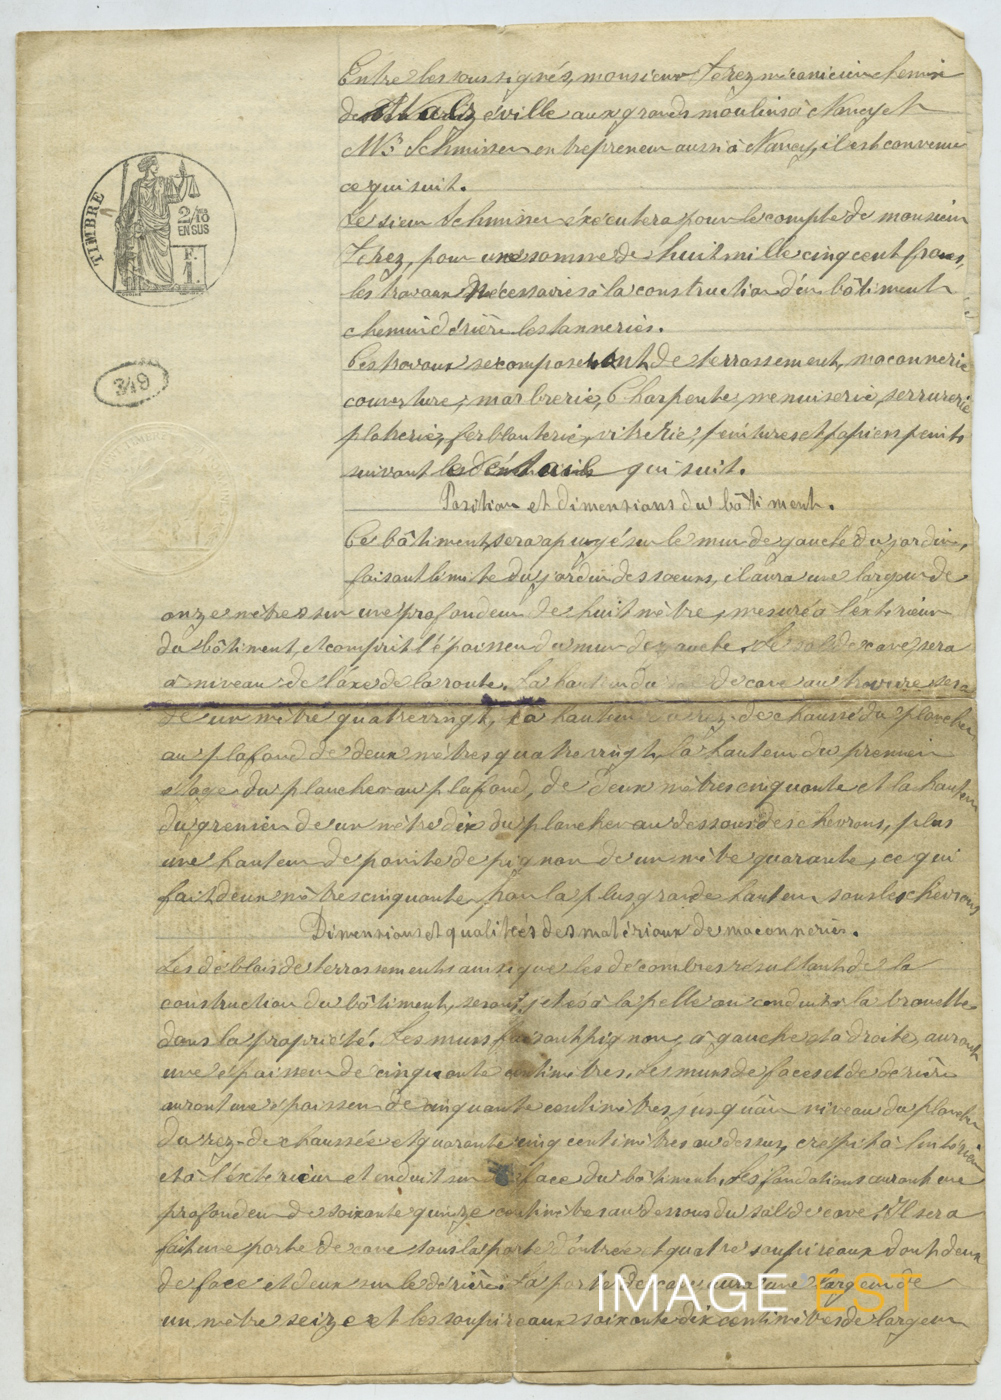 TIMBRE
2/10 EN SUS
F. 1.
349
Entre les sous signés, monsieur Ferez mécanicien chemin
de Malzéville aux grands moulins à Nancy et
Mr Schminser entrepreneur aussi à Nancy, il est convenu
ce qui suit.
Le sieur Schminser éxécutera pour le compte de monsieur
Ferez, pour une somme de huit mille cinq cent francs,
les travaux nécessaires à la construction d'un bâtiment
chemin dérière les tanneries.
Ces travaux se composeront de terrassement, maconnerie
couverture, marbrerie, Charpentes, menuiserie, serrurerie
platrerie, ferblanterie, vitrerie, peintures et papiers peints
suivant le détail qui suit.
Position et dimensions du bâtiment.
Ce bâtiment sera apuyé sur le mur de gauche du jardin,
faisant limite du jardin des soeurs, il aura une largeur de
onze mètres sur une profondeur de huit mètre, mesuré à l'extérieur
du bâtiment, et comprit l'épaisseur du mur de gauche. Le sol de cave sera
à niveau de l'axe de la route. La hauteur du sol de cave au sera
de un mètre quatre vingt, la hauteur du rez-de chaussé du plancher
au plafond de deux mètres quatre vingt, la hauteur du premier
étage du plancher au plafond, de deux mètres cinquante et la hauteur
du grenier de un mètre dix du plancher au dessous des chevrons, plus
une hauteur de pointe de pignon de un mètre quarante, ce qui
fait deux mètres cinquante pour la plus grande hauteur sous les chevrons
Dimensions et qualitées des matériaux de maconneries.
Les déblais de terrassements ainsi que les décombres résultant de la
construction du bâtiment, seront jetés à la pelle ou conduits à la brouette
dans la propriété. Les murs faisant pignons, à gauche et à droite, auront
une épaisseur de cinquante centimètres. Les murs de faces et de dérière
auront une épaisseur de cinquante centimètres jusqu'au niveau du plancher
du rez-de chaussée et quarante cinq centimètres au dessus, crépit à l'intérieur
et à l'extérieur et enduit sur face du bâtiment. Les fondations auront une
profondeur de soixante quinze centimètres au dessous du sol de cave. Il sera
fait une porte de cave sous la porte d'entrée et quatre soupireaux dont deux
de face et deux sur le dérière. La porte de cave aura une largeur de
un mètre seize et les soupireaux soixante dix centimètres de largeur
IMAGE EST